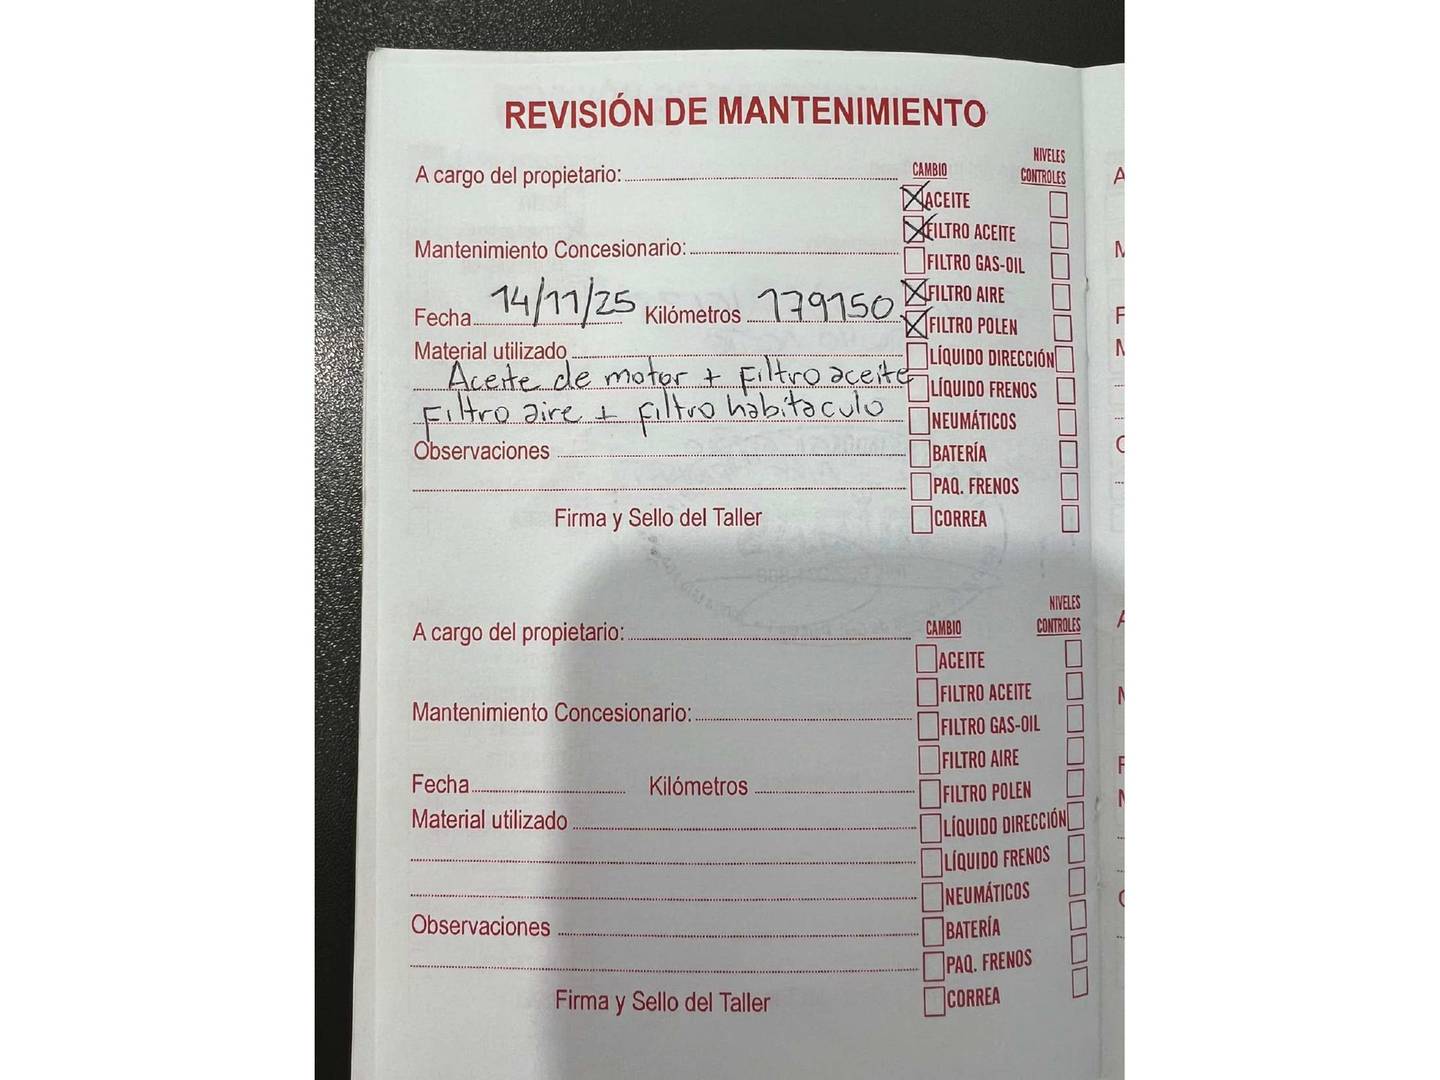 REVISIÓN DE MANTENIMIENTO
A cargo del propietario:
Mantenimiento Concesionario:
Fecha 14/11/25 Kilómetros 179150
Material utilizado
Aceite de motor + Filtro aceite
Filtro aire + filtro habitaculo
Observaciones
Firma y Sello del Taller
CAMBIO
NIVELES
CONTROLES
ACEITE
FILTRO ACEITE
FILTRO GAS-OIL
FILTRO AIRE
FILTRO POLEN
LÍQUIDO DIRECCIÓN
LÍQUIDO FRENOS
NEUMÁTICOS
BATERÍA
PAQ. FRENOS
CORREA
A cargo del propietario:
Mantenimiento Concesionario:
Fecha Kilómetros
Material utilizado
Observaciones
Firma y Sello del Taller
CAMBIO
NIVELES
CONTROLES
ACEITE
FILTRO ACEITE
FILTRO GAS-OIL
FILTRO AIRE
FILTRO POLEN
LÍQUIDO DIRECCIÓN
LÍQUIDO FRENOS
NEUMÁTICOS
BATERÍA
PAQ. FRENOS
CORREA